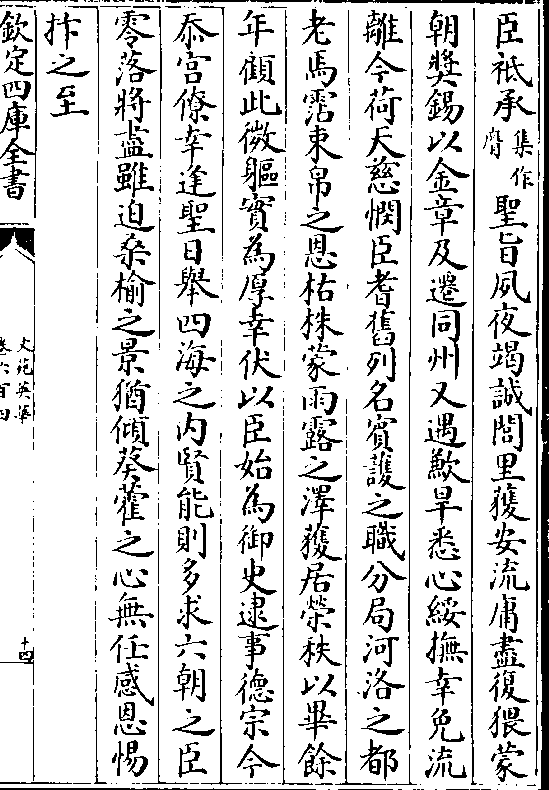 臣祗承集作膺聖旨夙夜竭誠閭里獲安流庸盡復猥蒙
朝獎錫以金章及遷同州又遇歉旱悉心綏撫幸免流
離今荷天慈憫臣耆舊列名賓護之職分局河洛之都
老馬霑束帛之恩枯株蒙雨露之澤獲居榮秩以畢餘
年顧此微軀實為厚幸伏以臣始為御史逮事德宗今
忝宫僚幸逢聖日舉四海之内賢能則多求六朝之臣
零落將盡雖迫桑榆之景猶傾葵藿之心無任感恩惕
抃之至
欽定四庫全書
文苑英華
卷六百四
十四